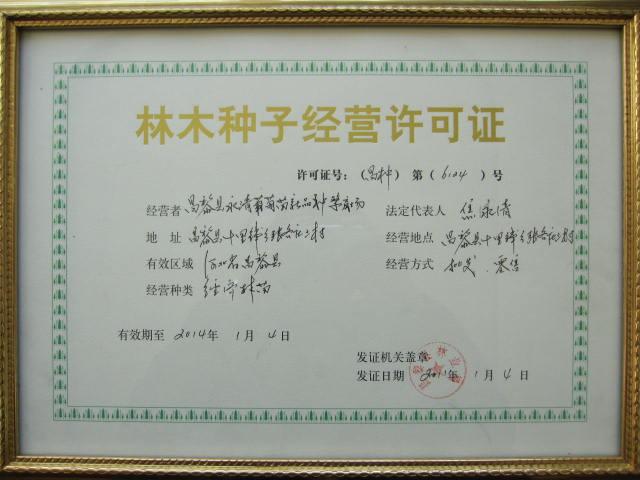 林木种子经营许可证
许可证号：（昌林种）第（6124）号
经营者 昌黎县永清葡萄苗新品种繁育场 法定代表人 焦永清
地 址 昌黎县十里铺乡张各庄二村 经营地点 昌黎县十里铺乡张各庄二村
有效区域 河北省昌黎县 经营方式 批发、零售
经营种类 经济林苗
有效期至 2014年 1月4日
发证机关盖章
发证日期 2011年 1月4日